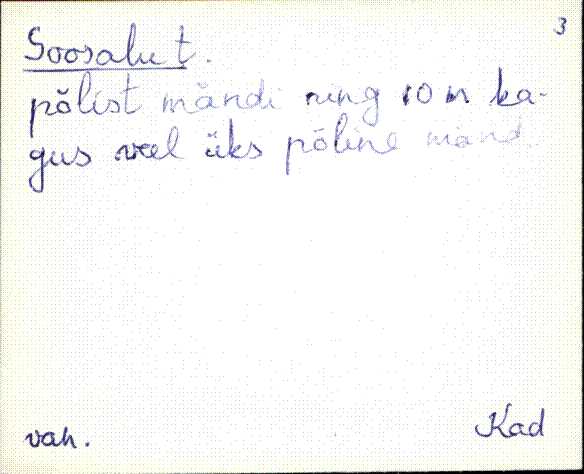 3
Soosalu t.
põlist mändi ning 10 m ka-
gus veel üks põline mänd.
vah.
Kad